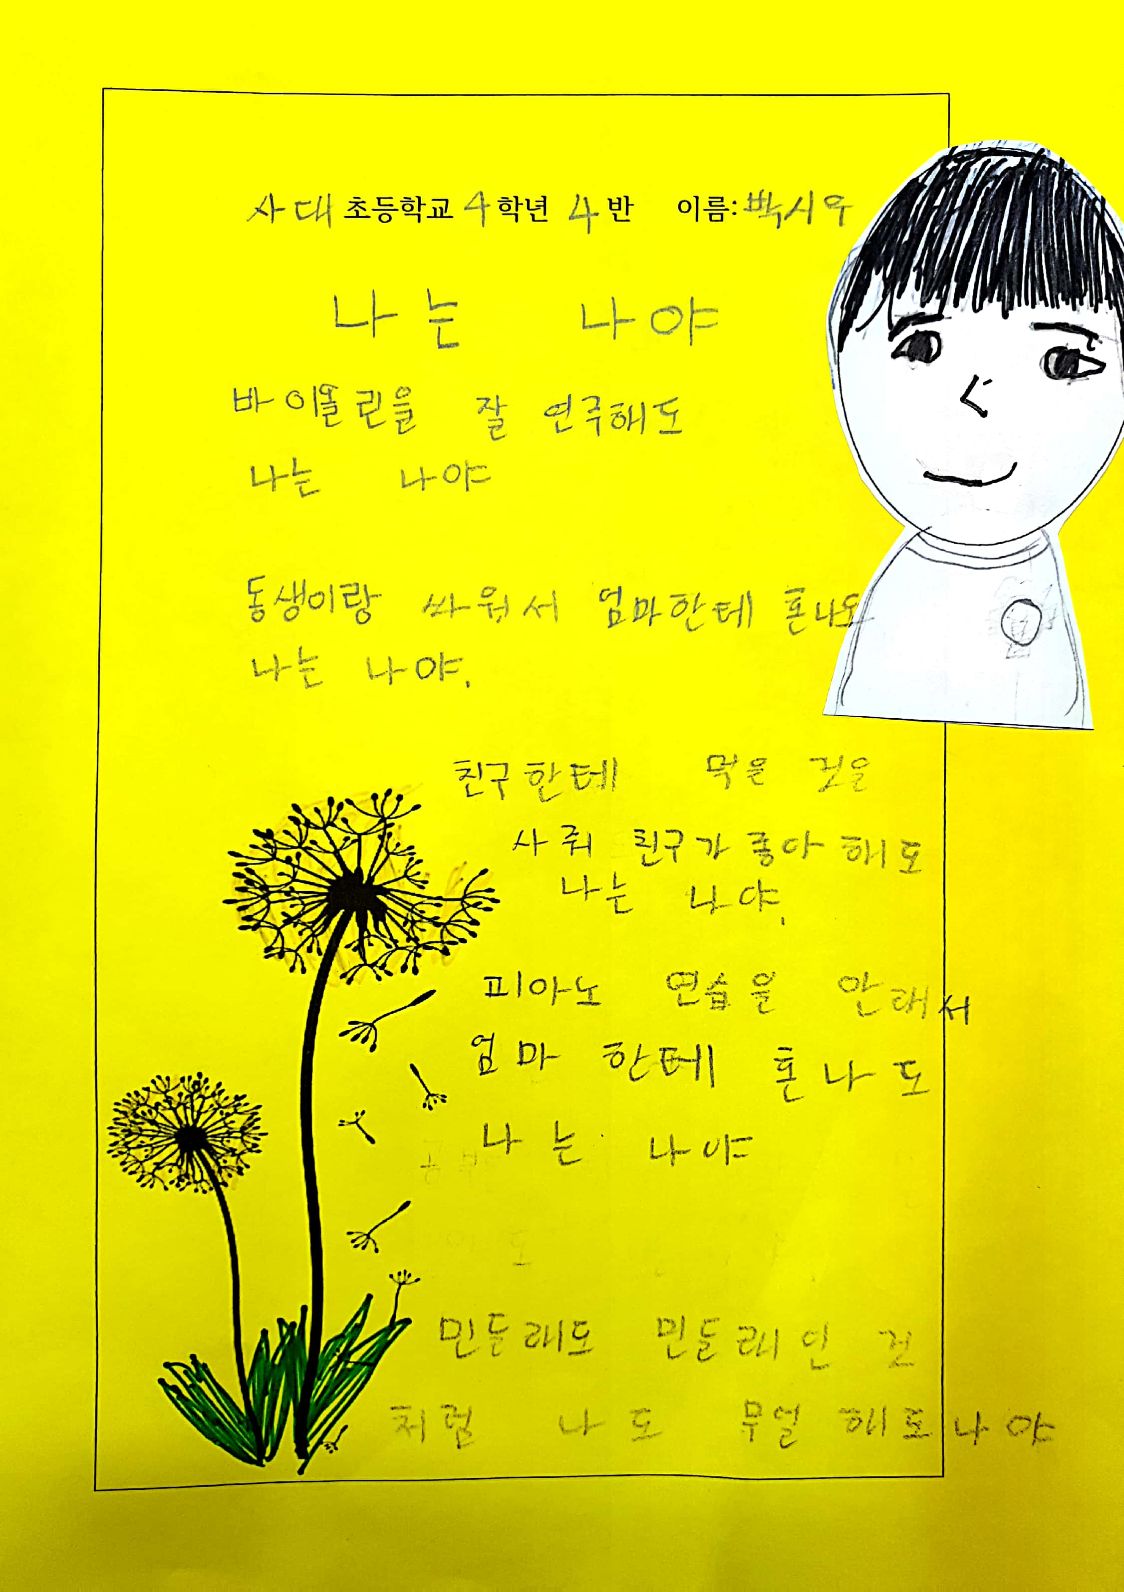 사대 초등학교 4 학년 4 반 이름: 박시우
나는 나야
바이올린을 잘 연주해도
나는 나야
동생이랑 싸워서 엄마한테 혼나도
나는 나야.
친구한테 먹을 것을
사줘 친구가 좋아해도
나는 나야.
피아노 연습을 안해서
엄마한테 혼나도
나는 나야
민들래도 민들래인 것
처럼 나도 무얼 해도 나야